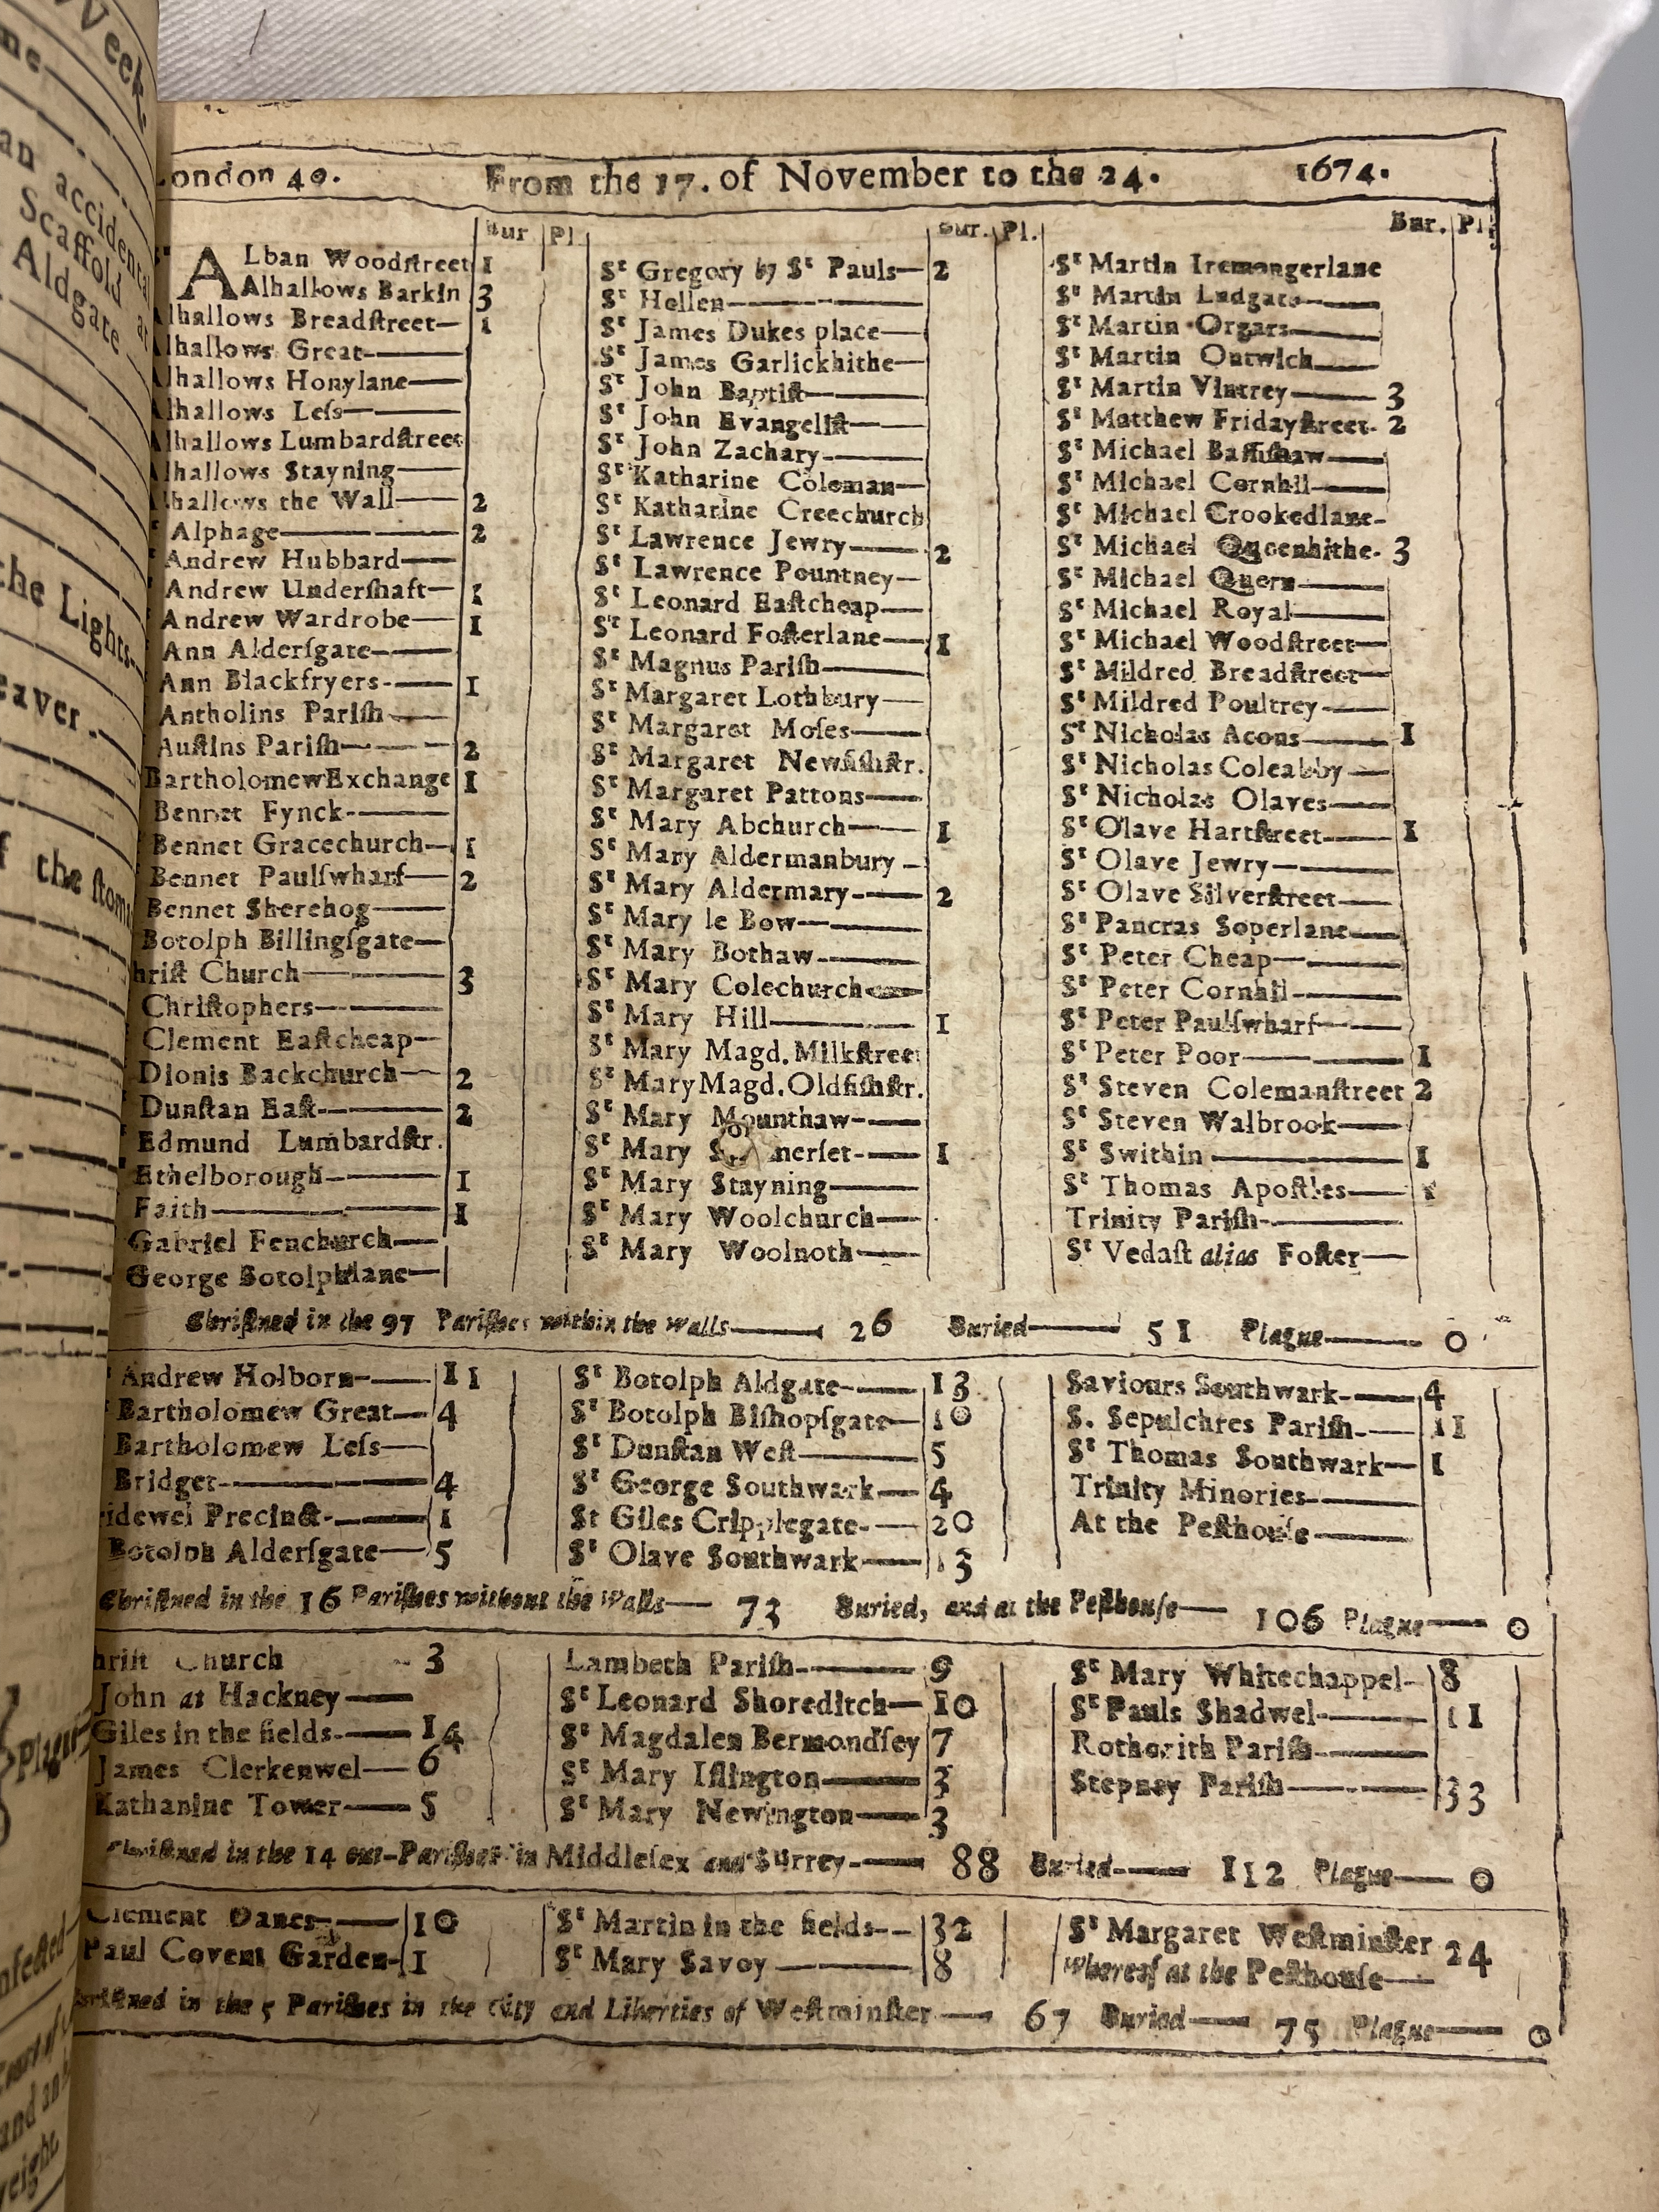 Week
an accidental
Scaffold at
Aldgate
the Lights
eaver
f the stom
Plague
nfected
ondon 40. From the 17. of November to the 24. 1674.
Bur Pl Bur. Pl. Bur. Pl.
Sᵗ ALban Woodſtreet 1
Alhallows Barkin 3
lhallows Breadſtreet— 1
lhallows Great———
lhallows Honylane——
lhallows Leſs———
lhallows Lumbardſtreet
lhallows Stayning——
lhallows the Wall—— 2
Alphage——— 2
Andrew Hubbard——
Andrew Underſhaft— 1
Andrew Wardrobe—— 1
Ann Alderſgate———
Ann Blackfryers-—— 1
Antholins Pariſh——
Auſtins Pariſh——— 2
BartholomewExchange 1
Bennet Fynck-———
Bennet Gracechurch— 1
Bennet Paulſwharf—— 2
Bennet Sherehog——
Botolph Billingſgate—
hriſt Church——— 3
Chriſtophers———
Clement Eaſtcheap—
Dionis Backchurch—— 2
Dunſtan Eaſt-——— 2
Edmund Lumbardſtr.
Ethelborough——— 1
Faith——— 1
Gabriel Fenchurch——
George Botolphlane—
Sᵗ Gregory by Sᵗ Pauls— 2
Sᵗ Hellen———
Sᵗ James Dukes place——
Sᵗ James Garlickhithe—
Sᵗ John Baptiſt———
Sᵗ John Evangeliſt——
Sᵗ John Zachary.———
Sᵗ Katharine Coleman—
Sᵗ Katharine Creechurch
Sᵗ Lawrence Jewry—— 2
Sᵗ Lawrence Pountney—
Sᵗ Leonard Eaſtcheap——
Sᵗ Leonard Foſterlane— 1
Sᵗ Magnus Pariſh———
Sᵗ Margaret Lothbury—
Sᵗ Margaret Moſes——
Sᵗ Margaret Newfiſhſtr.
Sᵗ Margaret Pattons——
Sᵗ Mary Abchurch—— 1
Sᵗ Mary Aldermanbury -
Sᵗ Mary Aldermary.—— 2
Sᵗ Mary le Bow———
Sᵗ Mary Bothaw———
Sᵗ Mary Colechurch——
Sᵗ Mary Hill——— 1
Sᵗ Mary Magd. Milkſtreet
Sᵗ Mary Magd. Oldfiſhſtr.
Sᵗ Mary Mounthaw-——
Sᵗ Mary S nerſet-—— 1
Sᵗ Mary Stayning———
Sᵗ Mary Woolchurch——
Sᵗ Mary Woolnoth——
Sᵗ Martin Iremongerlane
Sᵗ Martin Ludgate-——
Sᵗ Martin Orgars———
Sᵗ Martin Outwich——
Sᵗ Martin Vintrey—— 3
Sᵗ Matthew Fridayſtreet- 2
Sᵗ Michael Baſſiſhaw——
Sᵗ Michael Cornhil——
Sᵗ Michael Crookedlane-
Sᵗ Michael Queenhithe- 3
Sᵗ Michael Quern———
Sᵗ Michael Royal———
Sᵗ Michael Woodſtreet—
Sᵗ Mildred Breadſtreet—
Sᵗ Mildred Poultrey——
Sᵗ Nicholas Acons—— 1
Sᵗ Nicholas Coleabby—
Sᵗ Nicholas Olaves——
Sᵗ Olave Hartſtreet—— 1
Sᵗ Olave Jewry———
Sᵗ Olave Silverſtreet——
Sᵗ Pancras Soperlane——
Sᵗ Peter Cheap———
Sᵗ Peter Cornhil-———
Sᵗ Peter Paulſwharf——
Sᵗ Peter Poor——— 1
Sᵗ Steven Colemanſtreet 2
Sᵗ Steven Walbrook——
Sᵗ Swithin——— 1
Sᵗ Thomas Apoſtles—— 1
Trinity Pariſh-———
Sᵗ Vedaſt alias Foſter—
Chriſtned in the 97 Pariſhes within the walls——— 26 Buried——— 51 Plague——— 0
Andrew Holborn-—— 11
Bartholomew Great— 4
Bartholomew Leſs——
Bridget-——— 4
idewel Precinct-—— 1
Botolph Alderſgate— 5
Sᵗ Botolph Aldgate-—— 13
Sᵗ Botolph Biſhopſgate— 10
Sᵗ Dunſtan Weſt——— 5
Sᵗ George Southwark— 4
St Giles Cripplegate-— 20
Sᵗ Olave Southwark—— 13
Saviours Southwark-—— 4
S. Sepulchres Pariſh-—— 11
Sᵗ Thomas Southwark— 1
Trinity Minories-———
At the Peſthouſe———
Chriſtned in the 16 Pariſhes without the Walls—— 73 Buried, and at the Peſthouſe—— 106 Plague—— 0
hriſt Church 3
John at Hackney——
Giles in the fields-—— 14
James Clerkenwel—— 6
Katharine Tower—— 5
Lambeth Pariſh-——— 9
Sᵗ Leonard Shoreditch— 10
Sᵗ Magdalen Bermondſey 7
Sᵗ Mary Iſlington——— 3
Sᵗ Mary Newington—— 3
Sᵗ Mary Whitechappel- 8
Sᵗ Pauls Shadwel-——— 11
Rothorith Pariſh-———
Stepney Pariſh——— 33
Chriſtned in the 14 out-Pariſhes in Middleſex and Surrey-—— 88 Buried-—— 112 Plague—— 0
Clement Danes-—— 10
Paul Covent Garden- 1
Sᵗ Martin in the fields-- 32
Sᵗ Mary Savoy——— 8
Sᵗ Margaret Weſtminſter 24
Whereof at the Peſthouſe——
riſtned in the 5 Pariſhes in the City and Liberties of Weſtminſter—— 67 Buried—— 75 Plague—— 0